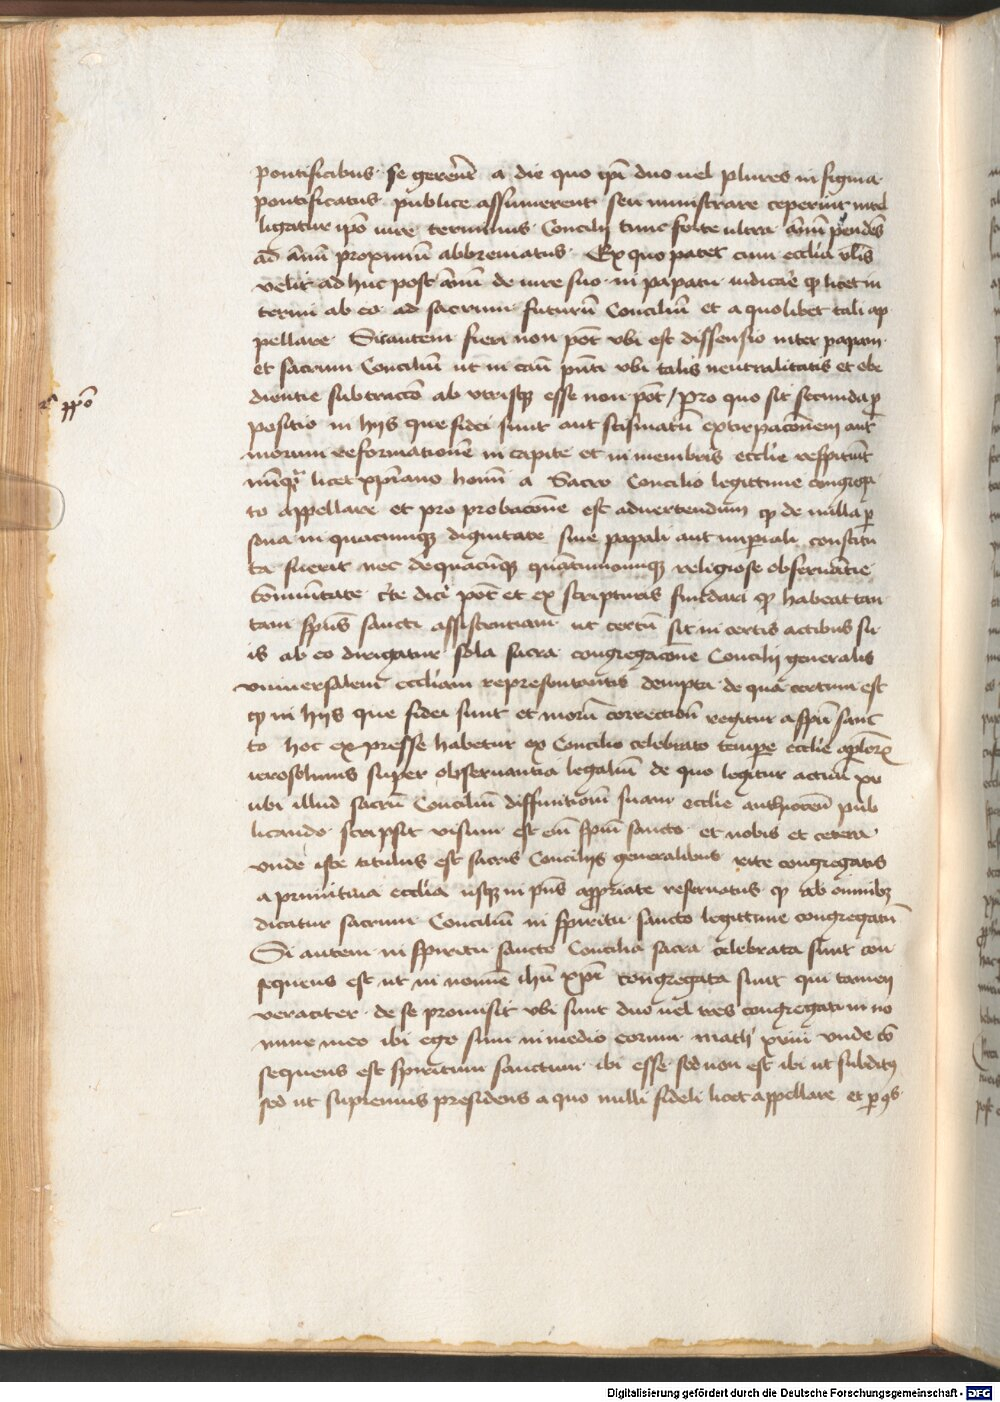 pontificibus se gererēt a die quo ip̄i duo uel plures in signia
pontificatus publice assumerent seu ministrare ceperint intel
ligatur ip̄o iure terminus Concilij tunc forte ultra annū pendēs
ad annū proximum abbreuiatus Ex quo patet cum eccl̄ia vl̄is
velit ad huc post annū de iure suo in papatu iudicare ꝙ licet in
terim ab eo ad sacrum futurū Conciliū et a quolibet tali ap
pellare Sic autem fieri non pōt vbi est dissensio inter papam
et sacrum Conciliū ut in casū pn̄ti vbi talis neutralitatis et obe
diencie subtractō ab vtrisqꝫ esse non pōt / Pro quo sit secunda ꝓ
2ᵃ ꝓpō
positio in hijs que fidei sunt aut scismatū extirpacōnem aut
morum reformationē in capite et in membris eccl̄ie respiciūt
nūqꝫ licet xp̄iano homī a Sacro Concilio legittime congrega
to appellare et pro probacōne est aduertendum ꝙ de nulla ꝑ
sona in quacumqꝫ dignitate siue papali aut imperiali constitu
ta fuerit nec de quacūqꝫ quātumcumqꝫ religiose obseruātie
cōmunitate c̄te dici pōt et ex scripturis fundari ꝙ habeat tan
tam sp̄us sancti assistentiam ut certū sit in certis actibus su
is ab eo dirigatur sola sacra congregacōne Concilij generalis
vniuersalem eccl̄iam representantis dempta de qua certum est
ꝙ in hijs que fidei sunt et morū correctionū regitur a sp̄u sanc
to hoc expresse habetur ex Concilio celebrato tempore eccl̄ie apl̄orꝫ
ierosolimis super obseruantia legaliū de quo legitur actuū xv
ubi illud sacrū Conciliū diffinitionū suam eccl̄ie anthiocen̄ pub
licando scripsit visum est em̄ sp̄ui sancto et nobis et cetera
vnde iste titulus est sacris Concilijs generalibus rite congregatis
a primitiua eccl̄ia usqꝫ in pn̄s appropriate reseruatus ꝙ ab omnibꝫ
dicatur sacrum Conciliū in spiritu sancto legittime congregatū
Si autem in spiritu sancto Concilia sacra celebrata sunt con
sequens est ut in nomine ihū xp̄i congregata sint qui tamen
veraciter de se promisit vbi sunt duo uel tres congregati in no
mine meo ibi ego sum in medio eorum math̄ xviij vnde cō
sequens est spiritum sanctum ibi esse sed non est ibi ut subditꝰ
sed ut supremus presidens a quo nulli fideli licet appellare et ꝑ ꝯs
Digitalisierung gefördert durch die Deutsche Forschungsgemeinschaft - DFG